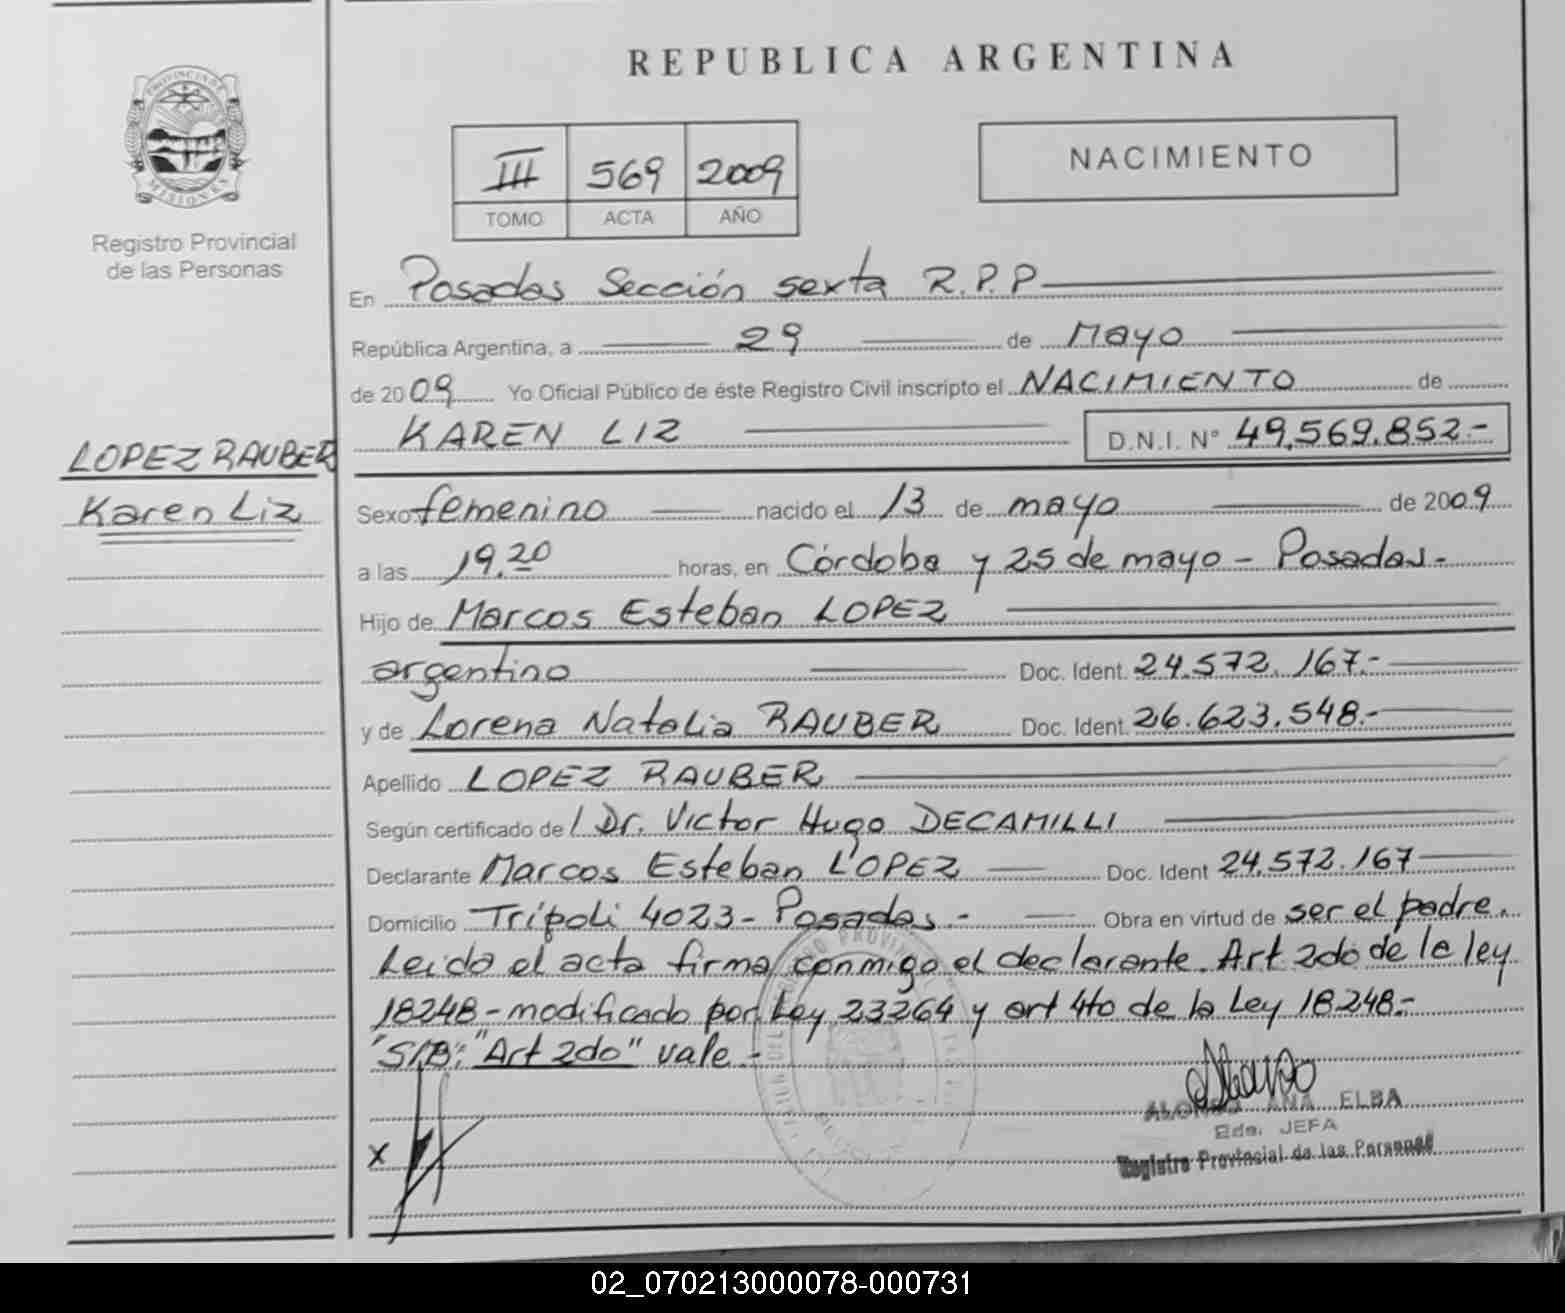 REPUBLICA ARGENTINA
PROVINCIA DE
MISIONES
Registro Provincial
de las Personas
III 569 2009
TOMO ACTA AÑO
NACIMIENTO
En Posadas Sección sexta R.P.P
República Argentina, a 29 de Mayo
de 2009 Yo Oficial Público de éste Registro Civil inscripto el NACIMIENTO de
KAREN LIZ D.N.I. N° 49.569.852.-
LOPEZ RAUBER
Karen Liz
Sexo femenino nacido el 13 de mayo de 2009
a las 19.20 horas, en Córdoba y 25 de mayo - Posadas.-
Hijo de Marcos Esteban LOPEZ
argentino Doc. Ident. 24.572.167.-
y de Lorena Natalia RAUBER Doc. Ident. 26.623.548.-
Apellido LOPEZ RAUBER
Según certificado de / Dr. Victor Hugo DECAMILLI
Declarante Marcos Esteban LOPEZ Doc. Ident 24.572.167
Domicilio Trípoli 4023 - Posadas.- Obra en virtud de ser el padre.
Leido el acta firma conmigo el declarante. Art 2do de la ley
18248 - modificado por Ley 23264 y art 4to de la Ley 18248.-
"S/B: "Art 2do" vale.-
X
ALONSO ANA ELBA
Eda. JEFA
Registro Provincial de las Personas
02_070213000078-000731